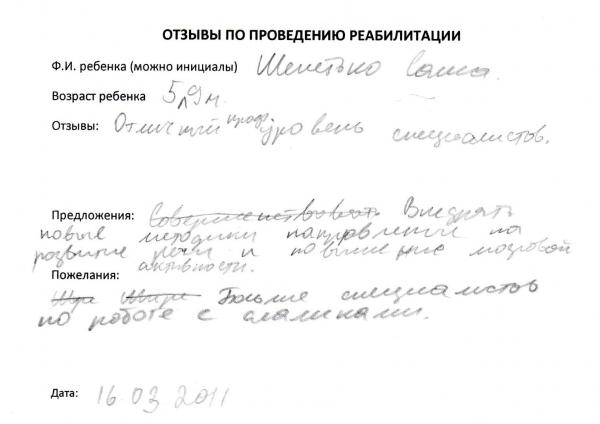 ОТЗЫВЫ ПО ПРОВЕДЕНИЮ РЕАБИЛИТАЦИИ
Ф.И. ребенка (можно инициалы) Шепетько Саша.
Возраст ребенка 5л 9м.
Отзывы: Отличный проф. уровень специалистов.
Предложения: Совершенствовать Внедрять
новые методики направлении на
развитие речи и повышение мозговой
активности.
Пожелания:
Больше специалистов
по работе с
Дата: 16.03 2011